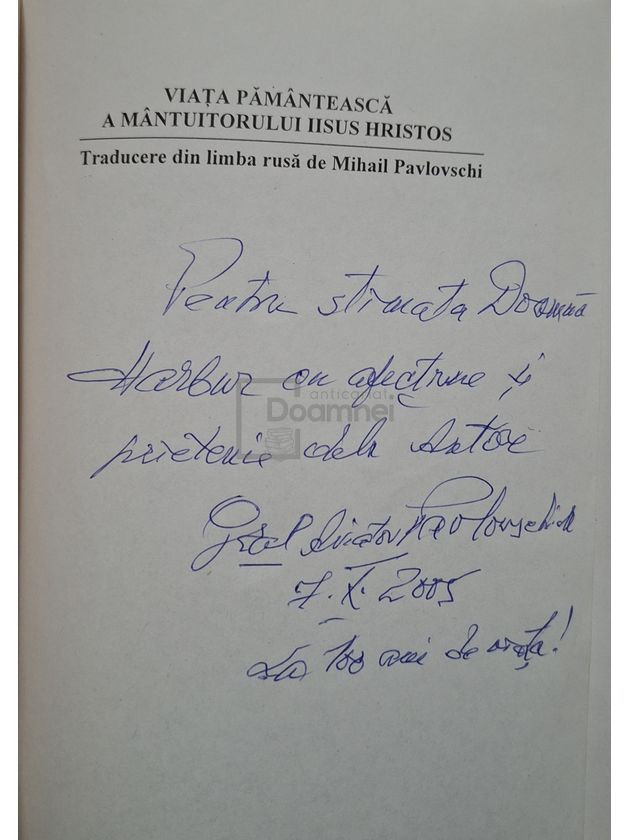 VIAȚA PĂMÂNTEASCĂ
A MÂNTUITORULUI IISUS HRISTOS
Traducere din limba rusă de Mihail Pavlovschi
Pentru stimata Doamnă
Harbur cu afecțiune și
anticariat
Doamnei
prietenie dela Autor
Aviator Pavlovschi M
7.X.2005
La 100 ani de viața!